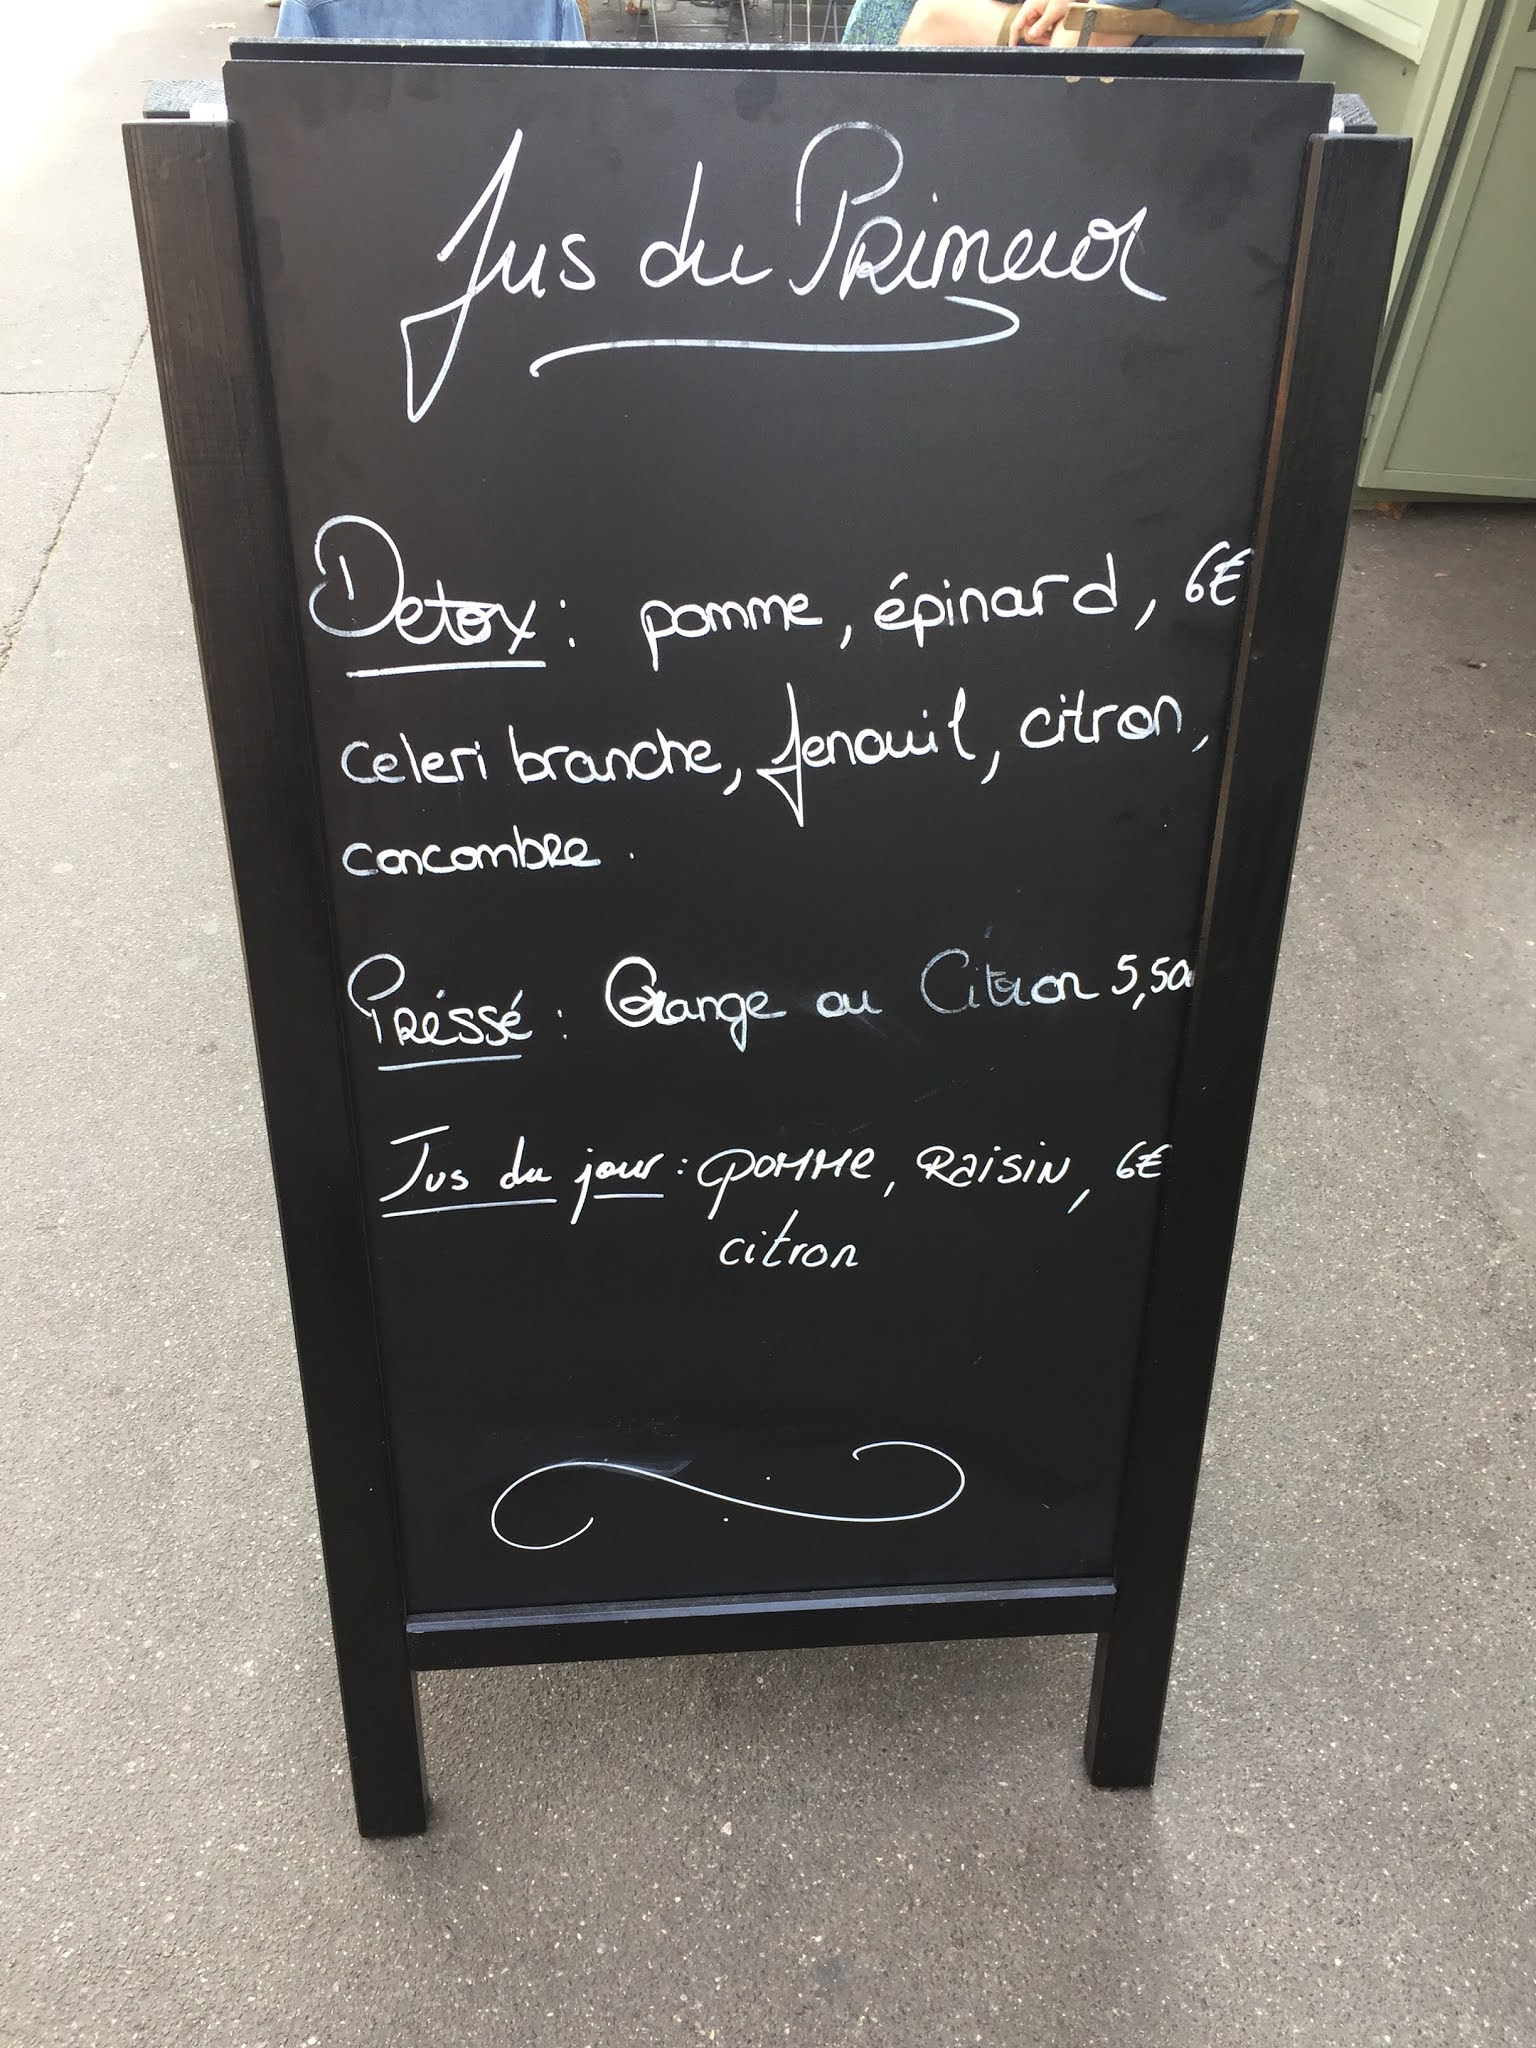 Jus du Primeur
Detox : pomme, épinard, 6€
celeri branche, fenouil, citron,
concombre.
Préssé : Orange ou Citron 5,50
Jus du jour : pomme, raisin, 6€
citron